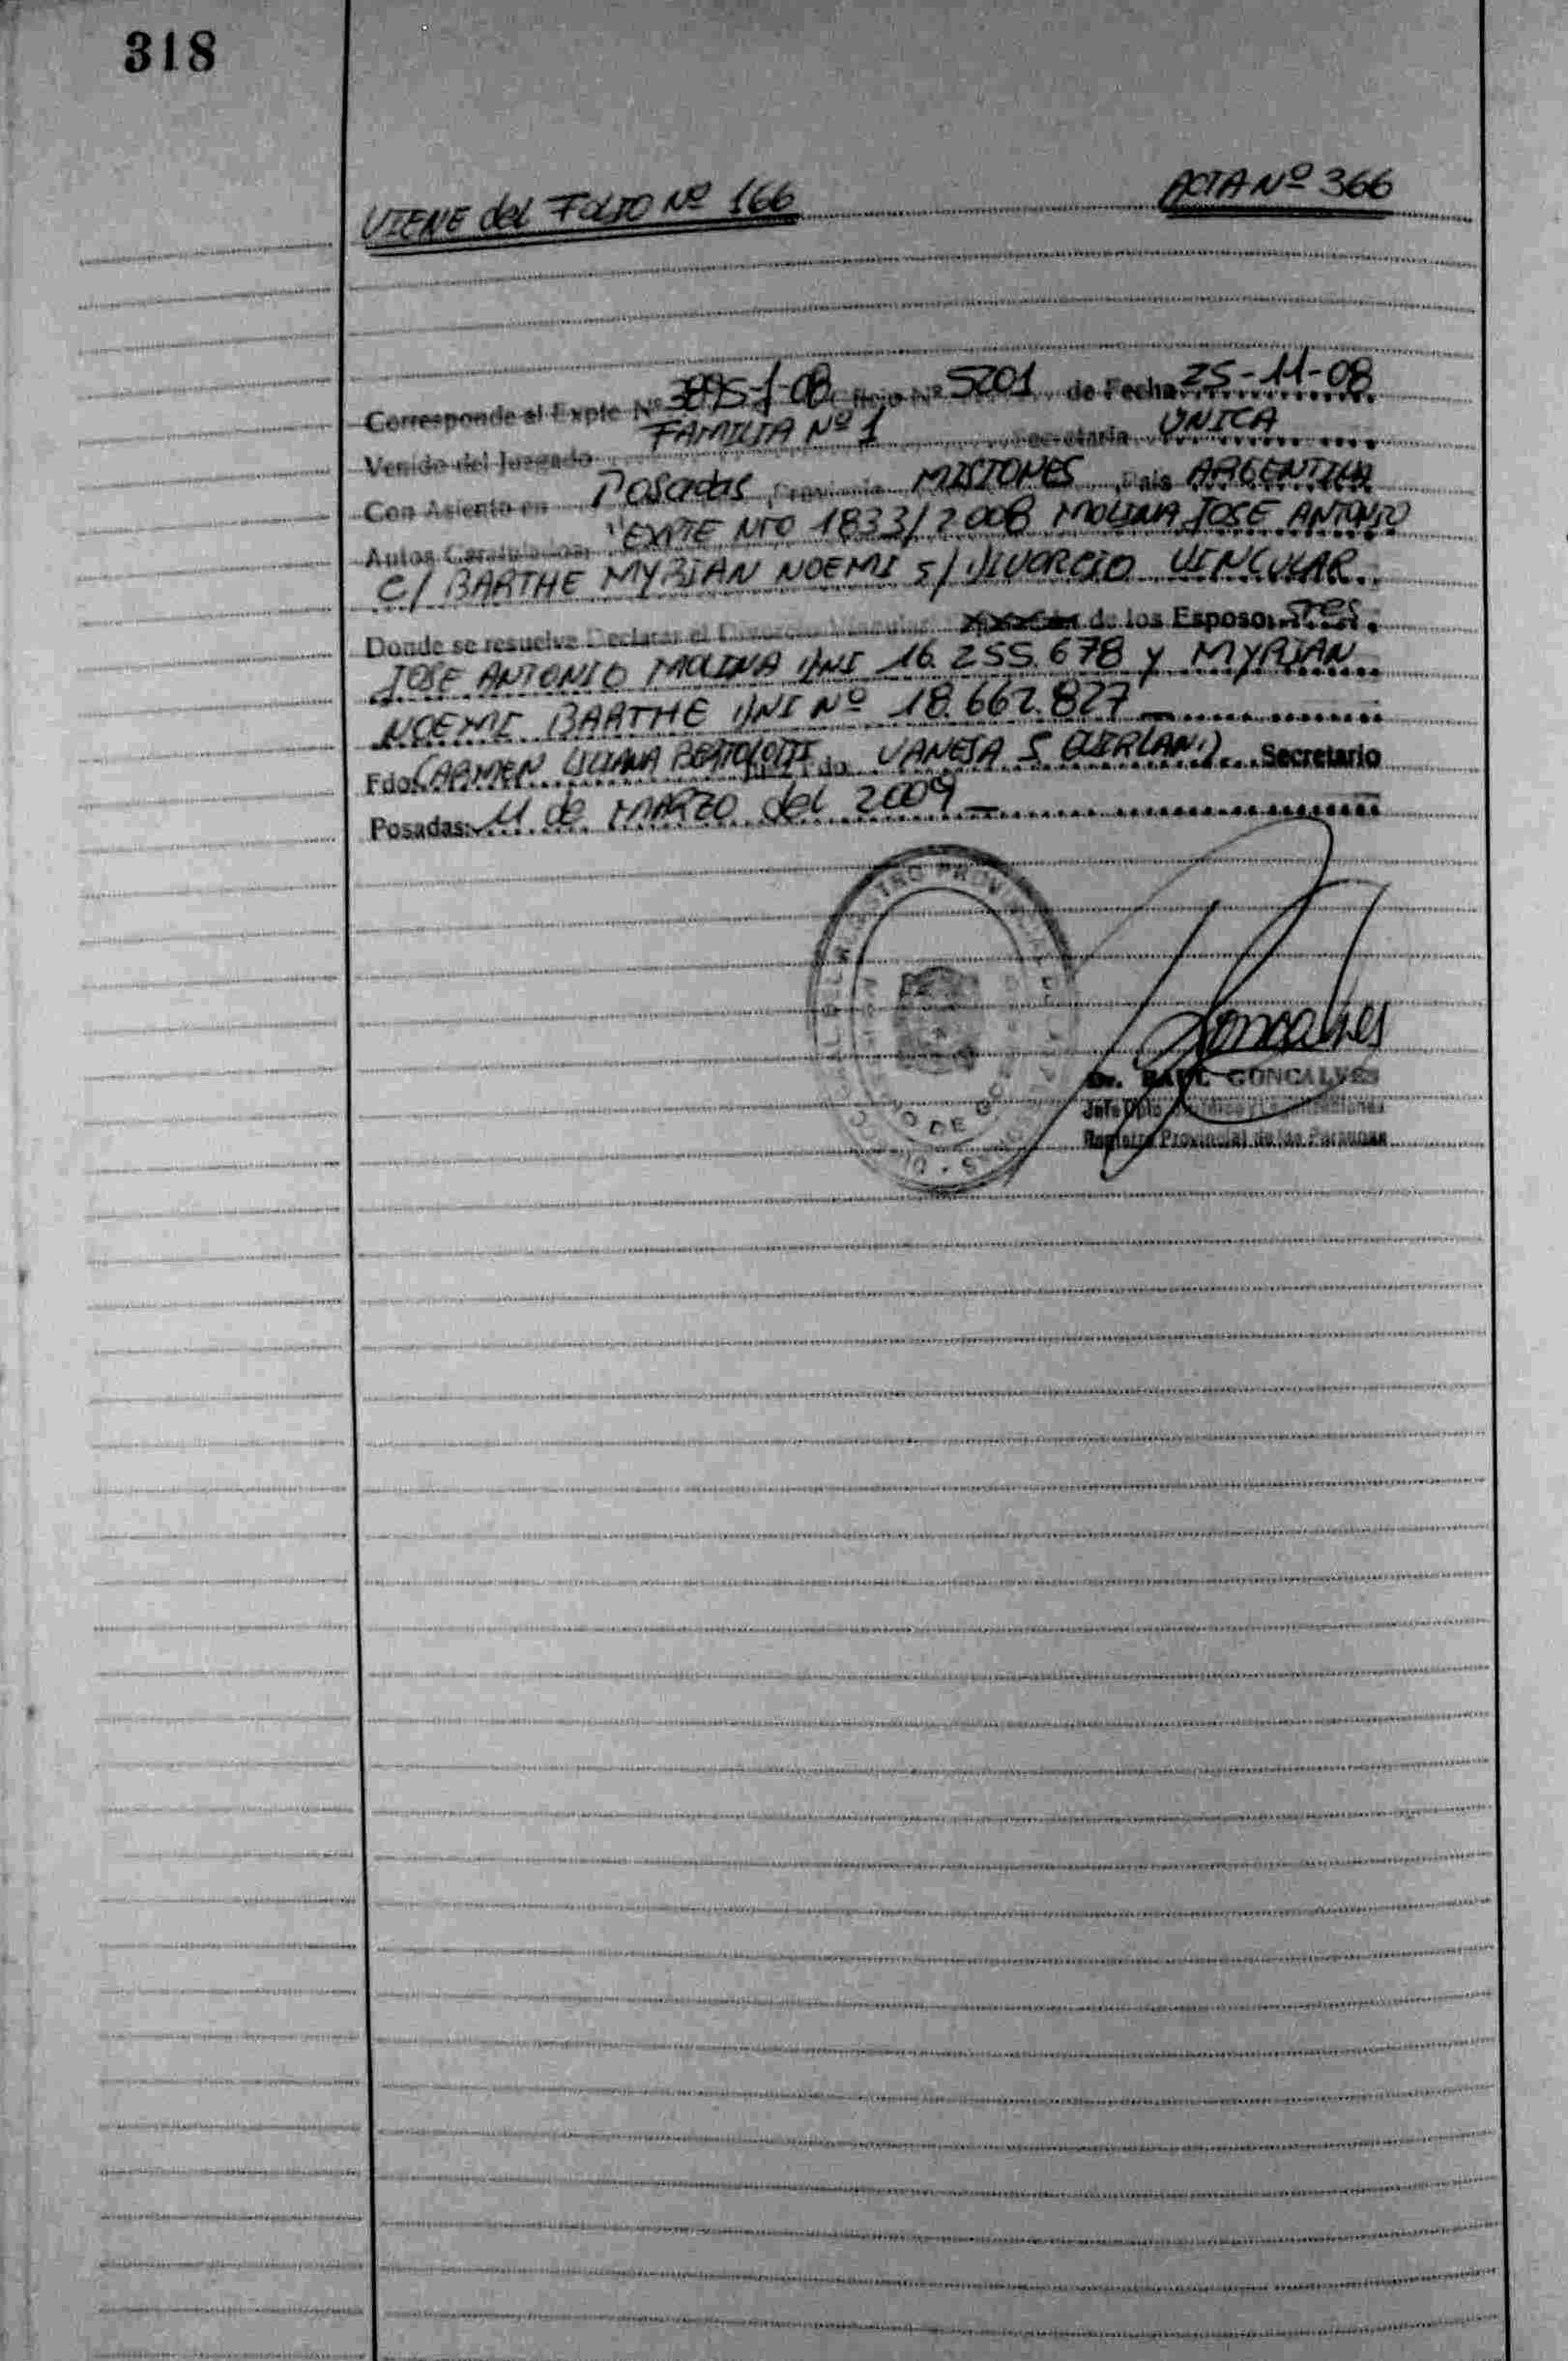 318
VIENE del FOLIO Nº 166 ACTA Nº 366
Corresponde al Expte Nº 3895-f-08 Oficio Nº 5201 de Fecha 25-11-08
Venido del Juzgado FAMILIA Nº 1 Secretaria UNICA
Con Asiento en Posadas, Provincia MISIONES, Pais ARGENTINA
Autos Caratulados: "EXPTE NRO 1833/2008 MOLINA JOSE ANTONIO
C/ BARTHE MYRIAN NOEMI S/ DIVORCIO VINCULAR.
Donde se resuelve Declarar el Divorcio Vincular de los Esposos: Sres.
JOSE ANTONIO MOLINA DNI 16.255.678 y MYRIAN
NOEMI BARTHE DNI Nº 18.662.827
Fdo: CARMEN LILIANA BERTOLOTTI VANESA S GUIRLAND Secretario
Posadas: 11 de MARZO del 2009
REGISTRO PROVINCIAL DE
Goncalves
Dr. RAUL GONCALVES
Jefe Dpto
Registro Provincial de las Personas